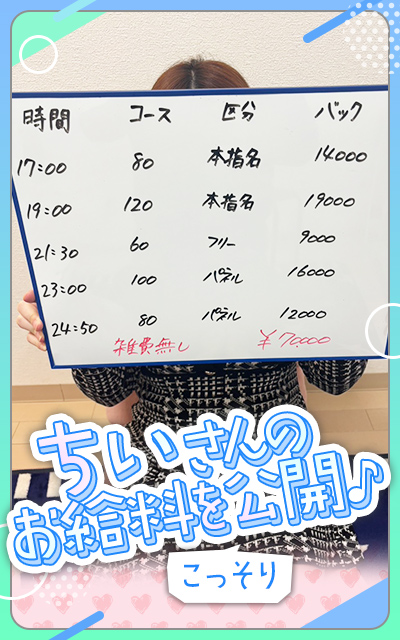 時間 コース 区分 バック
17:00 80 本指名 14000
19:00 120 本指名 19000
21:30 60 フリー 9000
23:00 100 パネル 16000
24:50 80 パネル 12000
雑費無し ¥70.000
ちいさんの
お給料を公開♪
こっそり